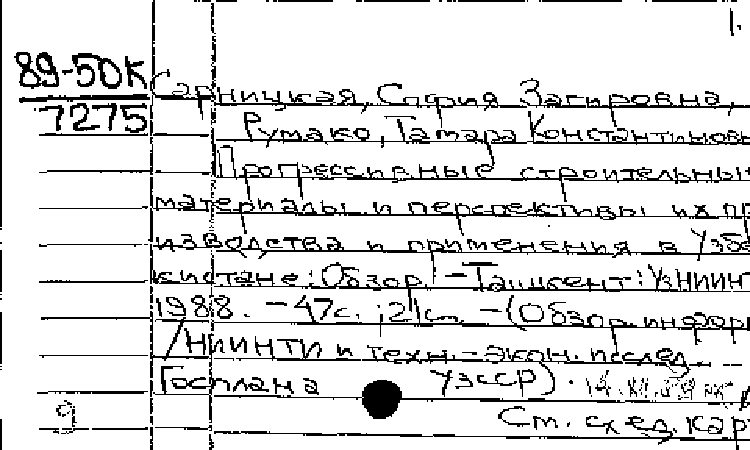 1.
89-50К
7275
Сарницкая, София Загировна,
Румако, Тамара Константиновн
Прогрессивные строительны
материалы и перспективы их пр
изводства и применения в Узбе
кистане: Обзор. - Ташкент: УзНИИНТ
1988. - 47с.; 21 см. - (Обзор. информ
/НИИНТИ и техн.-экон. исслед.
Госплана УзССР).
9
См. след. кар